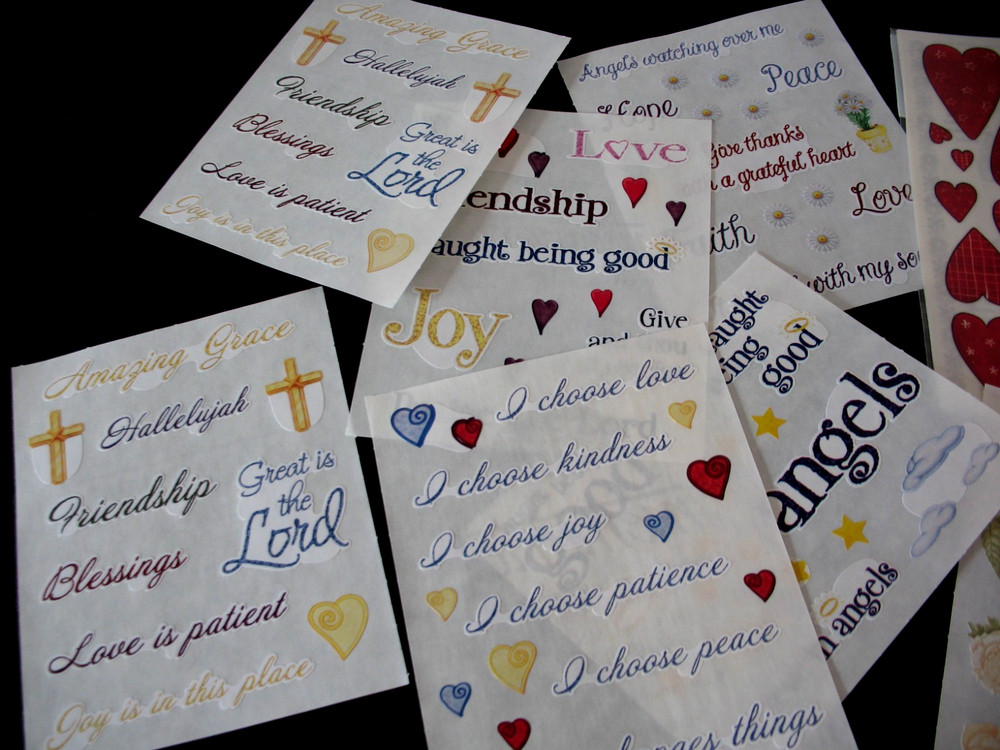 Amazing Grace
Hallelujah
Friendship
Blessings
Great is
the
Lord
Love is patient
Joy is in this place
Angels watching over me
Peace
Hope
Give thanks
a grateful heart
Love
with my
Love
endship
aught being good
Joy
Give
and
aught
ing
good
angels
angels
Amazing Grace
Hallelujah
Friendship
Great is
the
Lord
Blessings
Love is patient
Joy is in this place
I choose love
I choose kindness
I choose joy
I choose patience
I choose peace
things